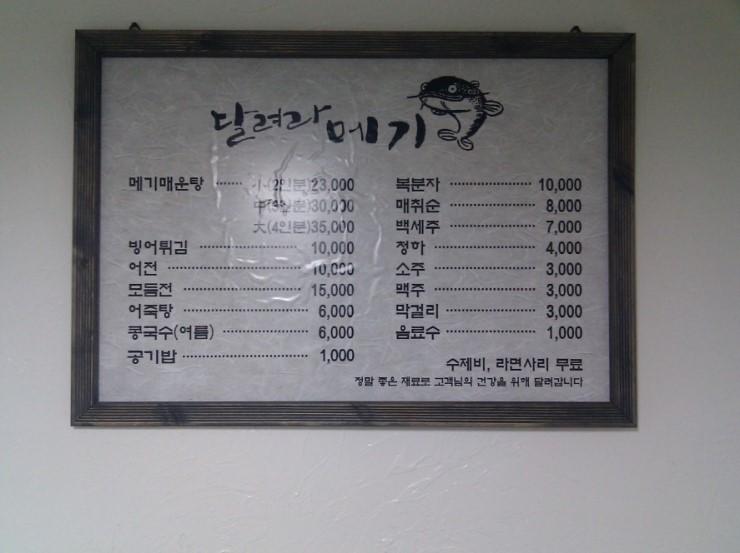 달려라 메기
메기매운탕 ······ 小(2인분)23,000
中(3인분)30,000
大(4인분)35,000
빙어튀김 ·················· 10,000
어전 ························· 10,000
모듬전 ······················ 15,000
어죽탕 ························ 6,000
콩국수(여름) ··············· 6,000
공기밥 ······················ 1,000
복분자 ················ 10,000
매취순 ················· 8,000
백세주 ················· 7,000
청하 ···················· 4,000
소주 ···················· 3,000
맥주 ···················· 3,000
막걸리 ················· 3,000
음료수 ················· 1,000
수제비, 라면사리 무료
정말 좋은 재료로 고객님의 건강을 위해 달려갑니다